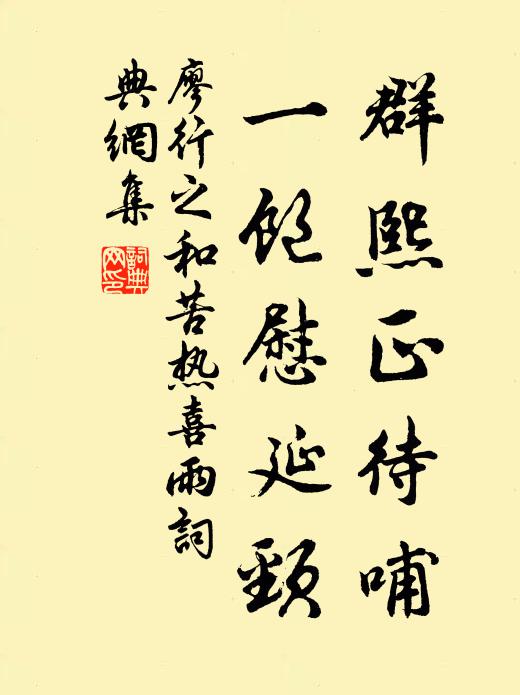 群熙正待哺
一饱慰延頸
廖行之和苦热喜雨詞
典網集
詞典網印